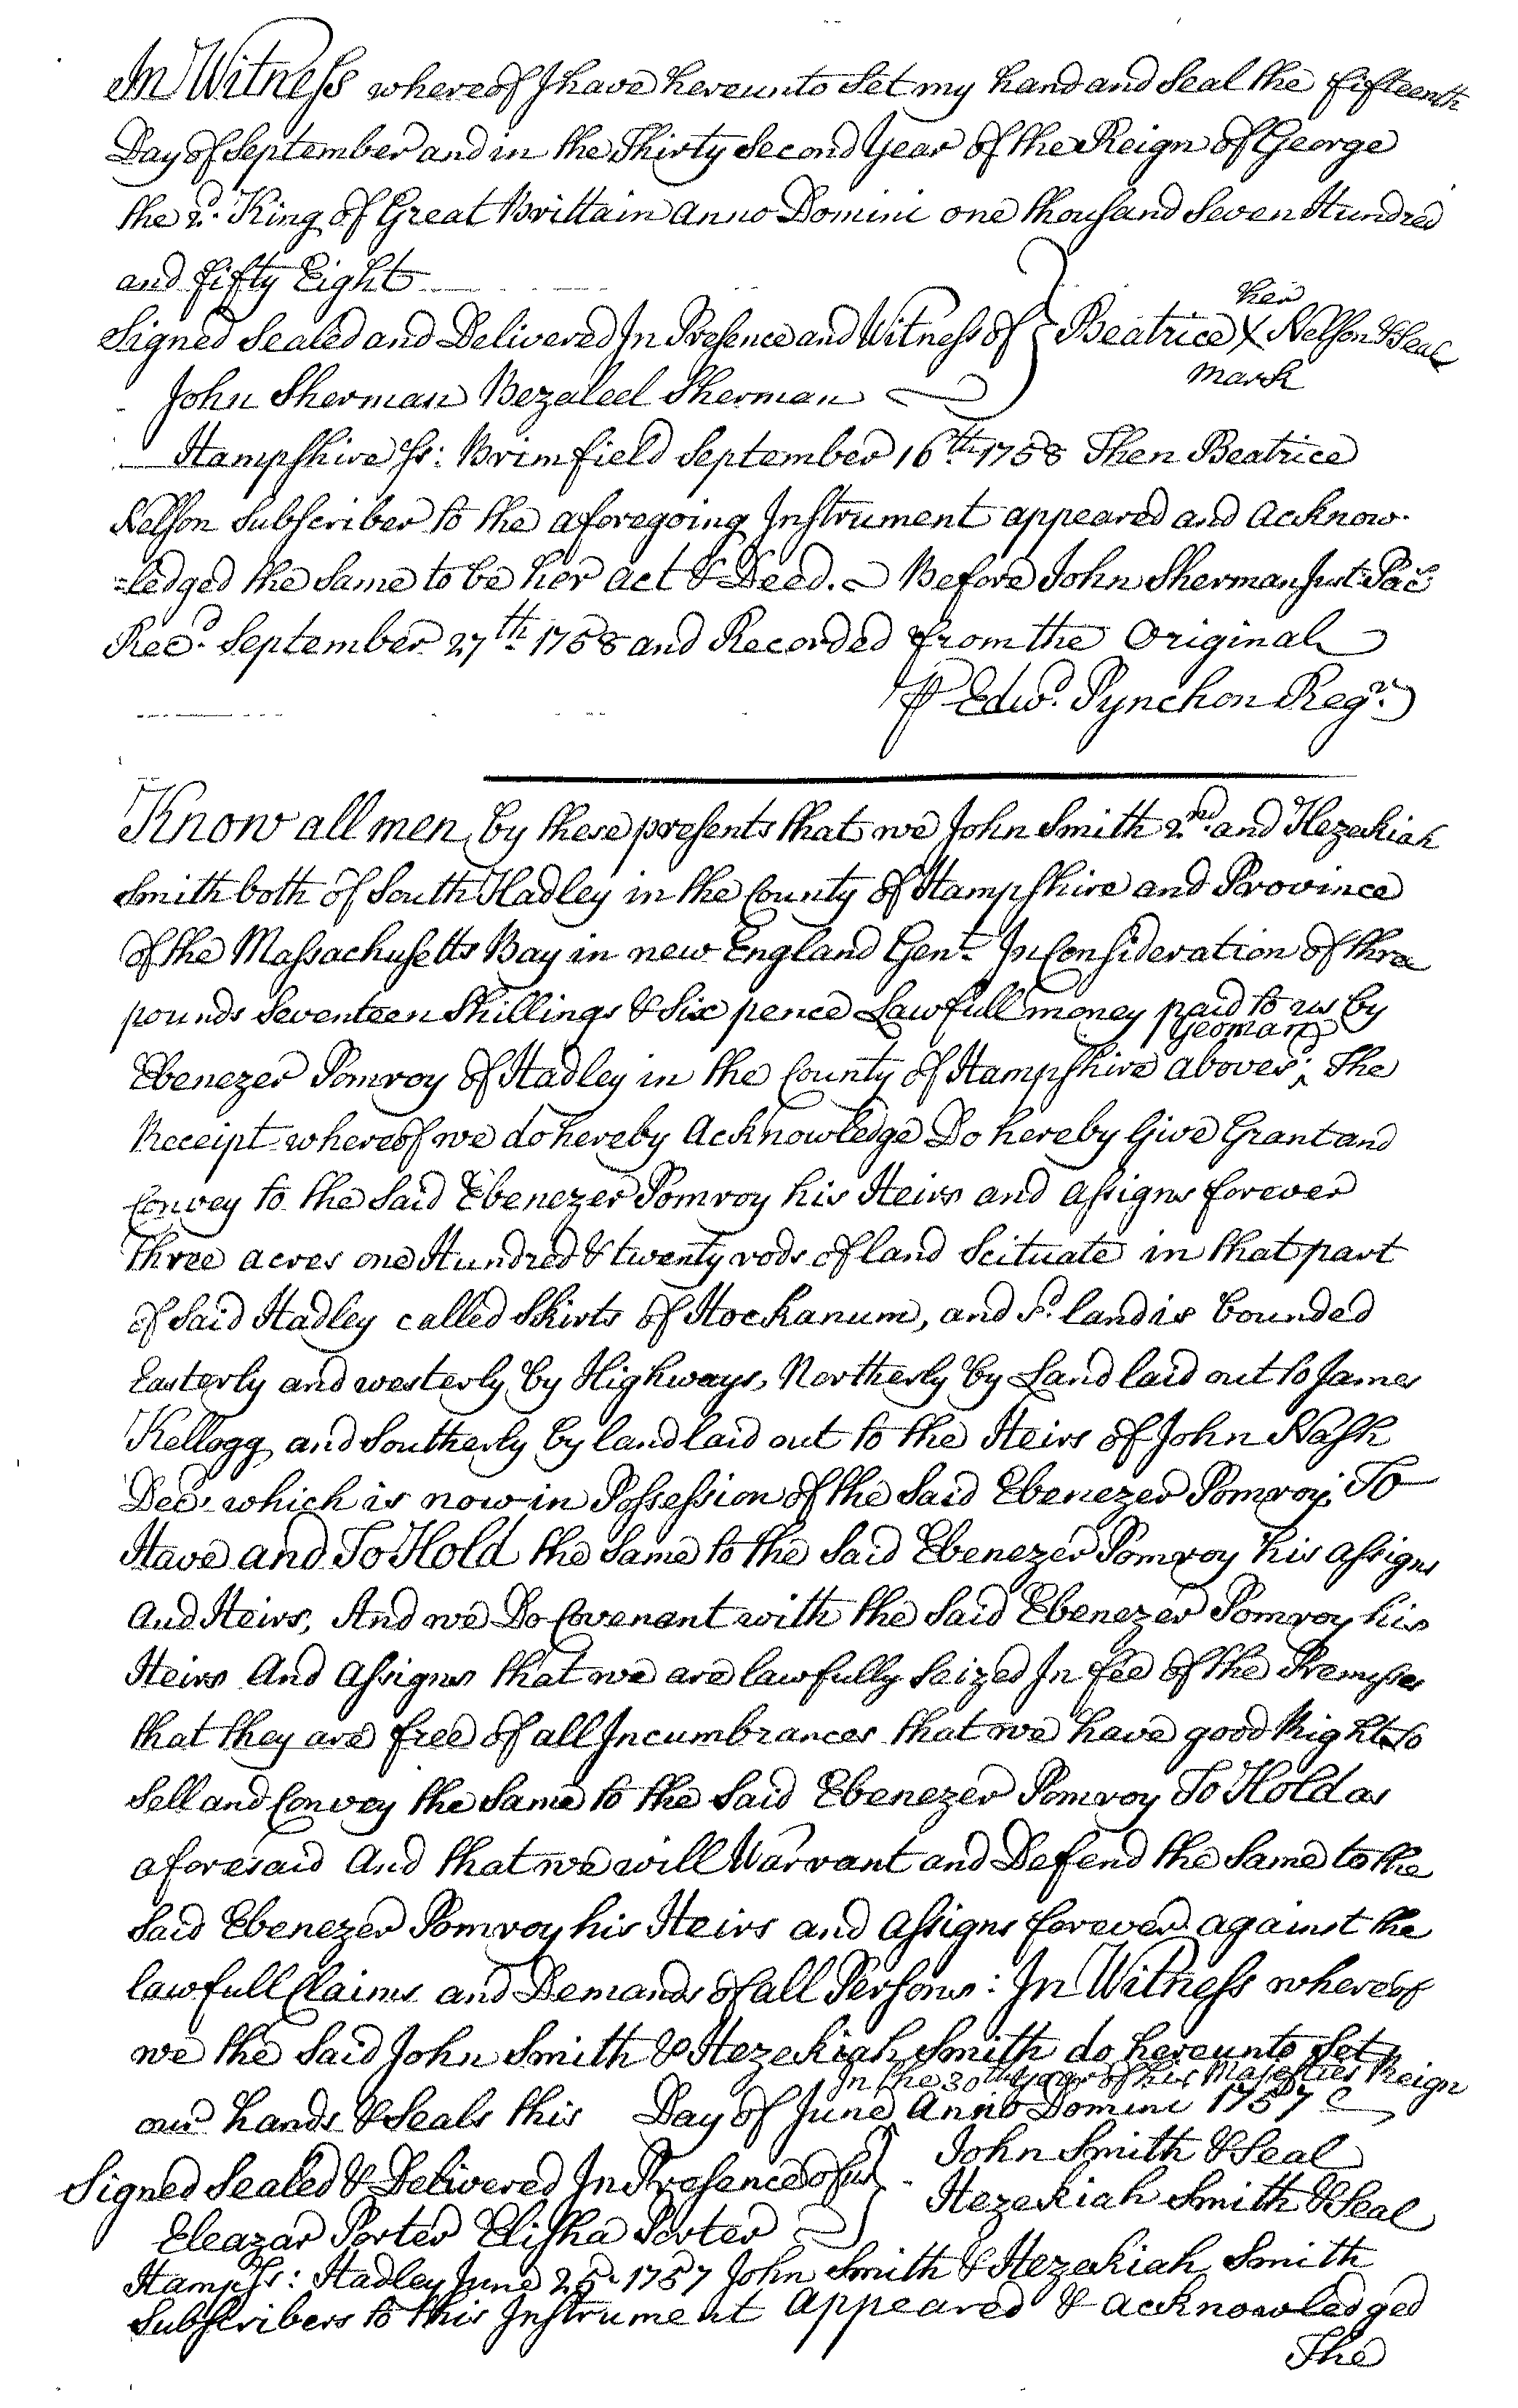 In Witness whereof I have hereunto Set my hand and Seal the fifteenth
Day of September and in the Thirty Second Year of the Reign of George
the 2d. King of Great Brittain Anno Domini one thousand Seven Hundred
and fifty Eight
her
Signed Sealed and Delivered In Presence and Witness of } Beatrice X Nelson & Seal
mark
John Sherman Bezaleel Sherman
Hampshire ss: Brimfield September 16th. 1758 Then Beatrice
Nelson Subscriber to the aforegoing Instrument appeared and acknow-
=ledged the Same to be her act & Deed. Before John Sherman Just: Pac
Recd. September 27th. 1758 and Recorded from the Original
⅌ Edwd. Pynchon Regr.
Know all men by these presents that we John Smith 2nd. and Hezekiah
Smith both of South Hadley in the County of Hampshire and Province
of the Massachusetts Bay in new England Gent. In Consideration of three
pounds Seventeen Shillings & Six pence Lawfull money paid to us by
Yeoman
Ebenezer Pomroy of Hadley in the County of Hampshire aboves: ‸ The
Receipt whereof we do hereby Acknowledge Do hereby Give Grant and
Convey to the Said Ebenezer Pomroy his Heirs and assigns forever
three acres one Hundred & twenty rods of land Scituate in that part
of Said Hadley called Skirts of Hockanum, and Sd. land is bounded
Easterly and westerly by Highways, Northerly by Land laid out to James
Kellogg and Southerly by land laid out to the Heirs of John Nash
Decd. which is now in Possession of the Said Ebenezer Pomroy; To
Have and To Hold the Same to the Said Ebenezer Pomroy his assigns
and Heirs, And we Do Covenant with the Said Ebenezer Pomroy his
Heirs And Assigns that we are lawfully Seized In fee of the Premyses
that they are free of all Incumbrances that we have good Right to
Sell and Convey the Same to the Said Ebenezer Pomroy To Hold as
aforesaid And that we will Warrant and Defend the Same to the
Said Ebenezer Pomroy his Heirs and assigns forever against the
lawfull Claims and Demands of all Persons: In Witness whereof
we the Said John Smith & Hezekiah Smith do hereunto Set
In the 30th year of his Majesties Reign
our hands & Seals this Day of June Anno Domini 1757
John Smith & Seal
Signed Sealed & Delivered In Presence of us }
Hezekiah Smith & Seal
Eleazar Porter Elisha Porter
Hampss: Hadley June 25. 1757 John Smith & Hezekiah Smith
Subscribers to this Instrument appeared & acknowledged
The